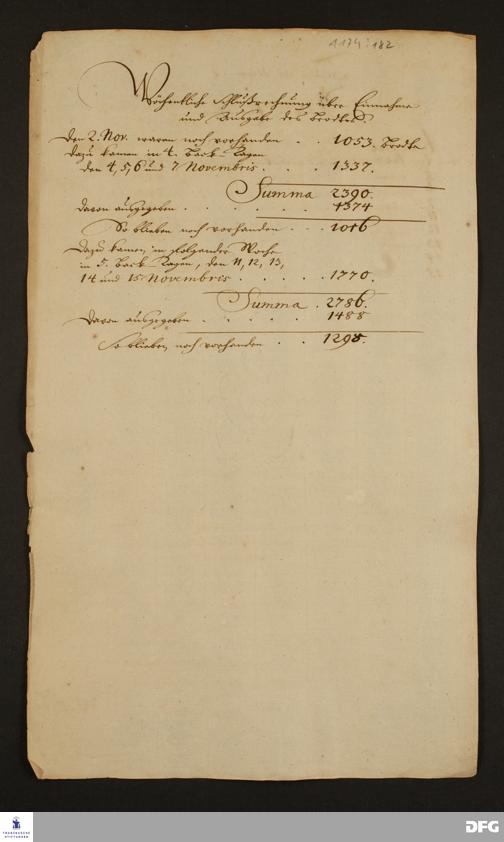 1174:182
Wöchentliche Schlußrechnung über Einnahme
und Ausgabe des Brodtes.
Den 2. Nov. waren noch vorhanden . . 1053. Brodte
dazu kamen in 4. Back-Tagen
den 4, 5, 6 und 7 Novembris . . . 1337.
Summa 2390.
davon ausgegeben . . . . . 1374
So blieben noch vorhanden . . . 1016
Dazu kamen in folgender Woche
in 5. Back Tagen, den 11, 12, 13,
14 und 15 Novembris . . . . 1770.
Summa . 2786.
Davon ausgegeben . . . . . 1488
So blieben noch vorhanden . . 1298.
FRANCKESCHE
STIFTUNGEN
DFG